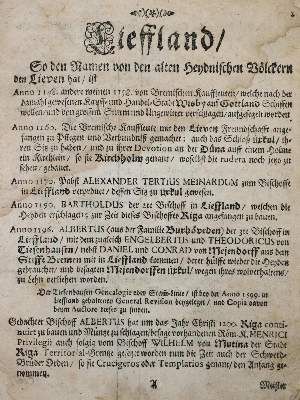 Lieffland/
So den Namen von den alten Heydnischen Völckern
den Lieven hat/ ist
Anno 1148. andere meinen 1158. von Bremischen Kauffleuten/ welche nach der
damahl gewesenen Kauffe und Handel-Stadt Wisby auf Gottland Schiffen
wollen/ und von grossem Sturm und Ungewitter verschlagen/ aufgesegelt worden
Anno 1160. Die Bremische Kauffleute mit den Lieven Freundschafft ange-
fangen zu pflegen und Verbündnuß gemachet: auch das Schloß ixkul/ ih-
ren Sitz zu haben/ und zu ihrer Devotion an der Düna auf einem Holme
ein Kirchlein/ so sie Kirchholm genant/ woselbst die rudera noch jetzo zu
sehen/ gebauet.
Anno 1170. Pabst ALEXANDER TERTIUS MEINARDUM zum Bischoffe
in Lieffland verordnet/ dessen Sitz zu ixkul gewesen.
Anno 1190. BARTHOLDUS der 2te Bischoff in Lieffland/ welchen die
Heyden erschlagen; zur Zeit dieses Bischoffes Riga angefangen zu bauen.
Anno 1196. ALBERTUS (aus der Familie Burhöveden) der 3te Bischoff in
Lieffland/ mit dem zugleich ENGELBERTUS und THEODORICUS von
Tiesenhausen/ nebst DANIEL und CONRAD von Mejendorff aus dem
Stiffte Bremen mit in Lieffland kommen/ derer hülffe wieder die Heyden
gebrauchet/ und besagten Mejendorffen ixkul/ wegen ihres wolverhaltens/
zu Lehn verliehen worden.
Der Tiesenhausen Genealogie oder Stam-Linie/ ist bey der Anno 1599. in
Lieffland gehaltenen General Revision beygeleget/ und Copia davon
beym Auctore dieses zu finden.
Gedachter Bischoff ALBERTUS hat um das Jahr Christi 1200. Riga conti-
nuiret zu bauen und Müntze zu schlagen; besage vorhandenen Röm. K. HENRICI
Privilegii auch folgig vom Bischoff WILHELM von Mutina der Stadt
Riga Territorial-Grentze gesetzet worden/ um die Zeit auch der Schwerdt-
Brüder Orden/ so sie Crucigeros oder Templarios genant/ den Anfang ge-
nommen.
A